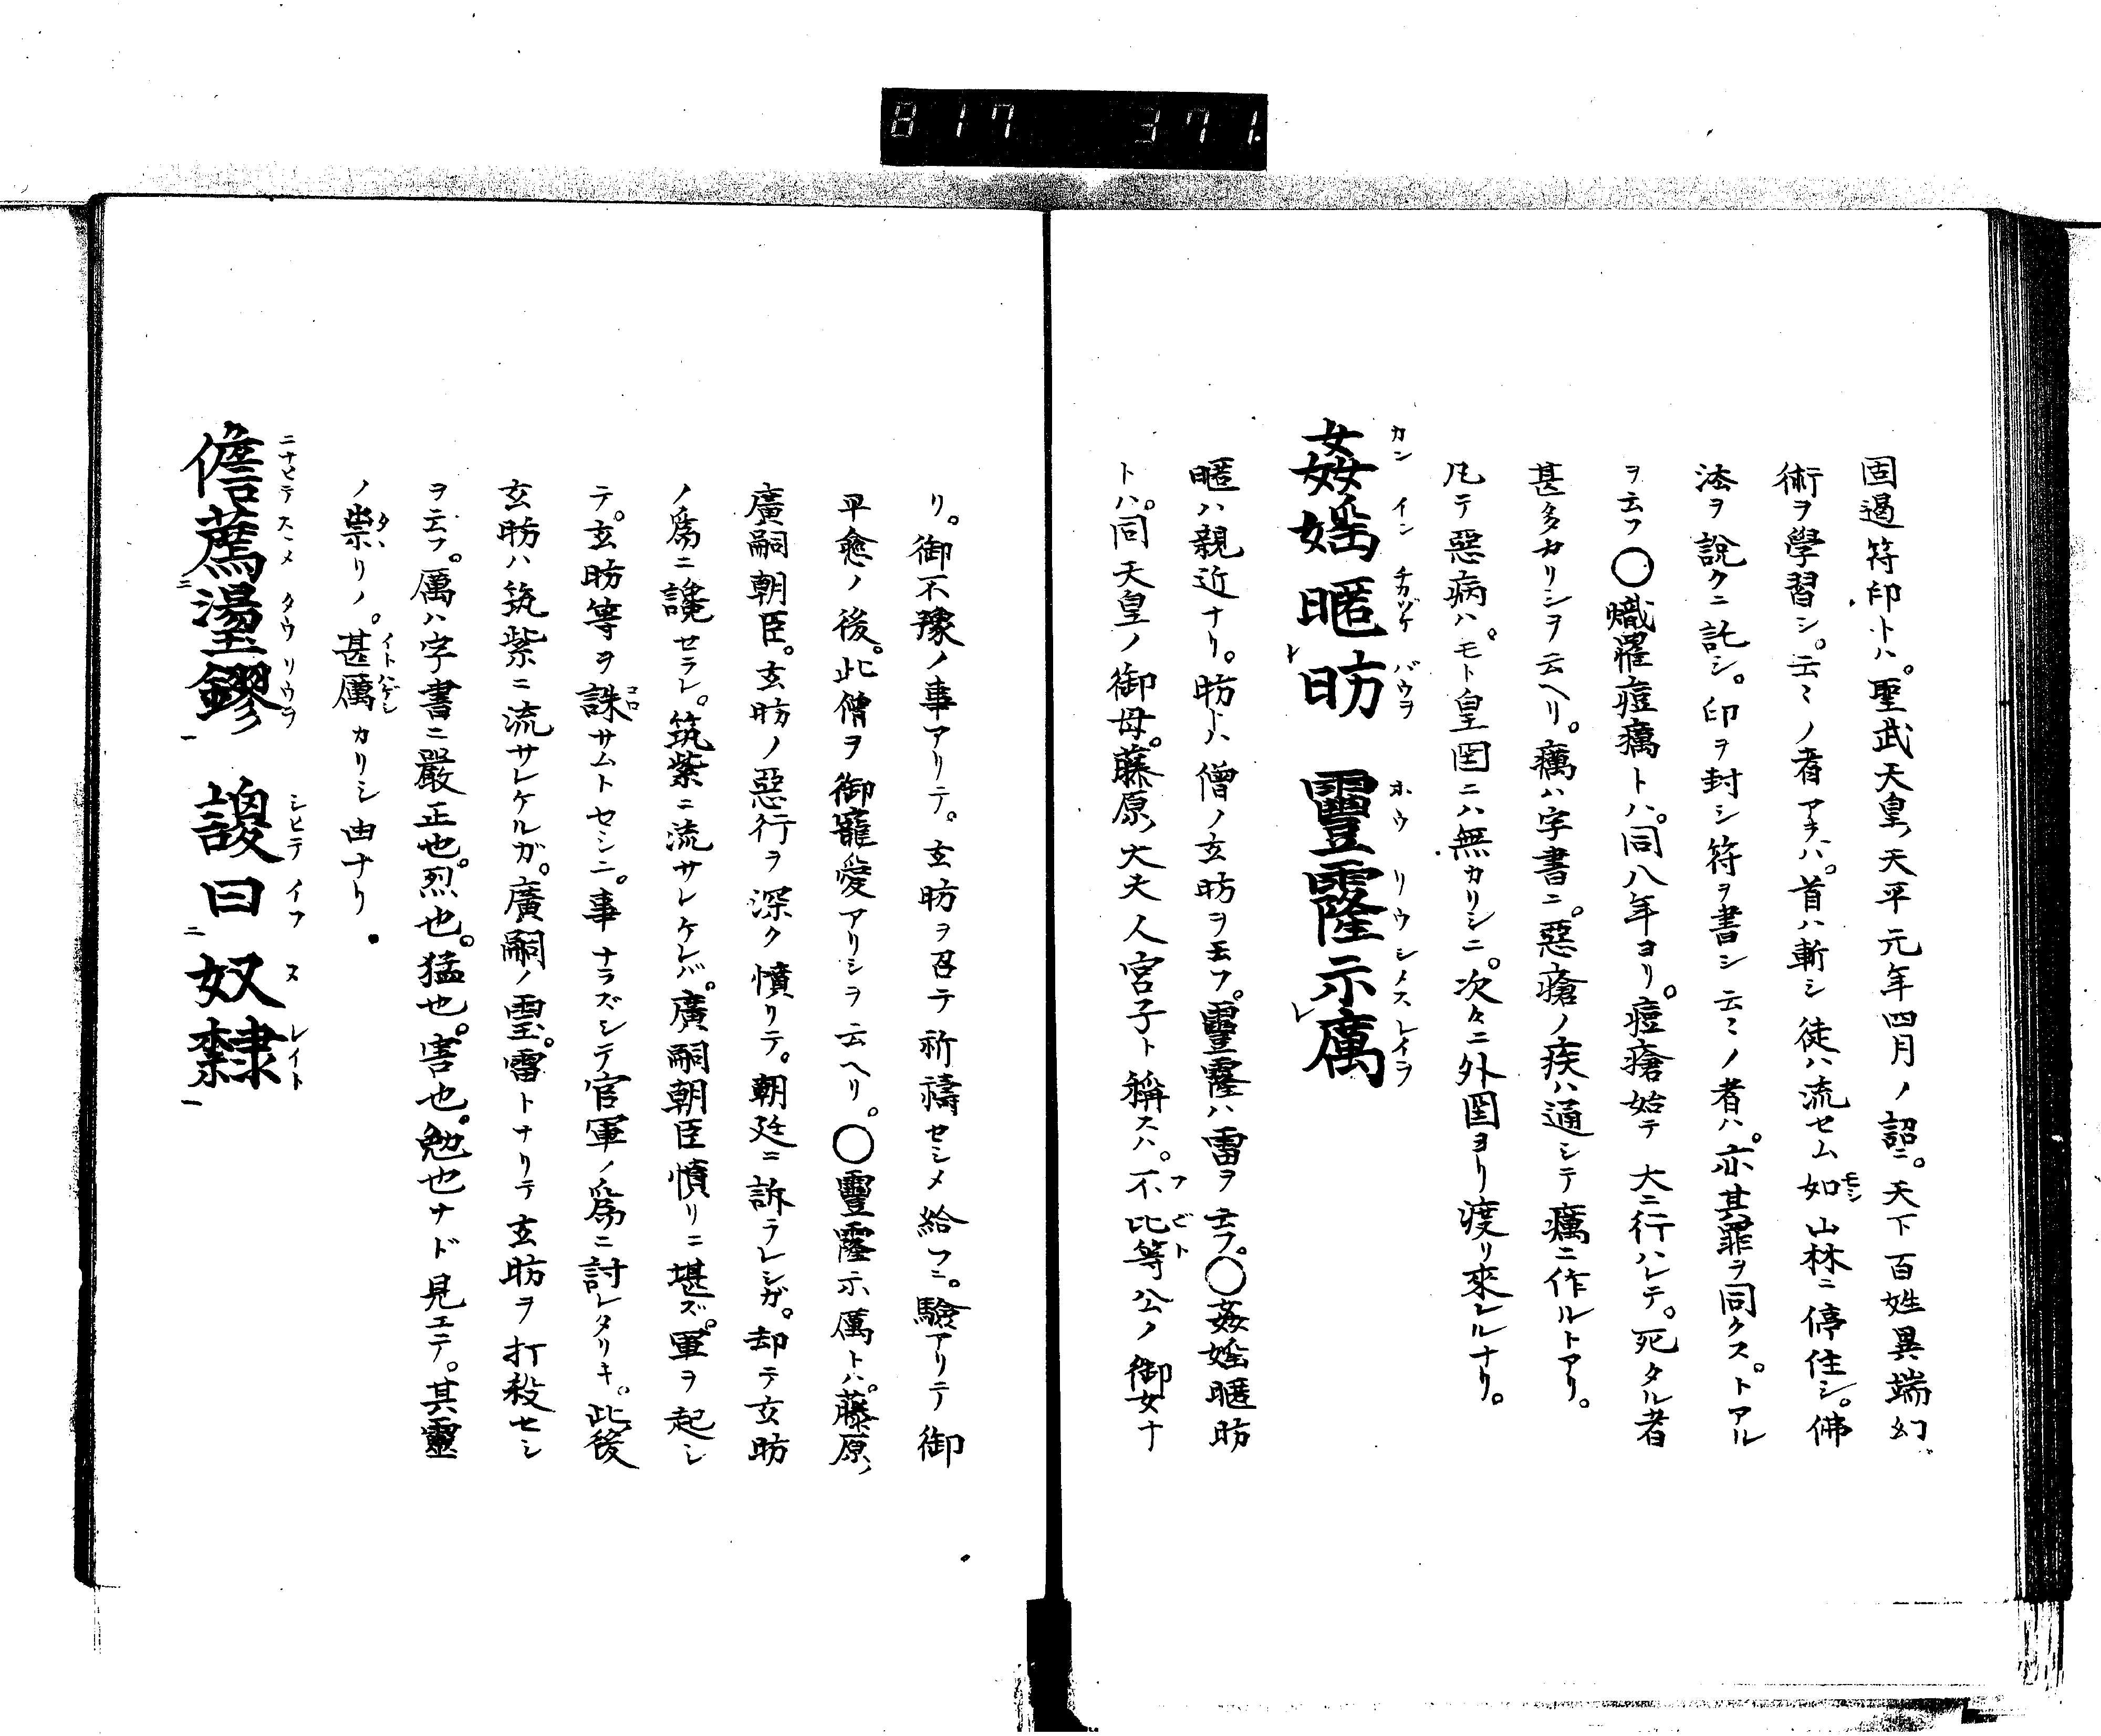 817 371
固遏符印トハ。聖武天皇ノ天平元年四月ノ詔ニ。天下百姓異端幻
術ヲ學習シ。云ミノ者アラバ。首ハ斬シ徒ハ流セム如山林ニ停住シ。佛
法ヲ說クニ託シ。印ヲ封シ符ヲ書シ云ミノ者ハ。亦其罪ヲ同クス。トアル
ヲ云フ〇熾罹痘癘トハ。同八年ヨリ。痘瘡始テ大ニ行ハレテ。死タル者
甚多カリシヲ云ヘリ。癘ハ字書ニ。惡瘡ノ疾ハ通シテ癘ニ作ルトアリ。
凡テ惡病ハ。モト皇国ニハ無カリシニ。次々ニ外国ヨリ渡リ來レルナリ。
姦婬暱昉 靊霳示厲
カン イン チカヅケ バウヲ ホウ リウシメス レイヲ
暱ハ親近ナリ。昉トハ僧ノ玄昉ヲ云フ。靊霳ハ雷ヲ云フ。〇姦婬暱昉
トハ。同天皇ノ御母。藤原ノ大夫人宮子ト稱スハ。不比等公ノ御女ナ
リ。御不豫ノ事アリテ。玄昉ヲ召テ祈禱セシメ給フニ。驗アリテ御
平愈ノ後。此僧ヲ御寵愛アリシヲ云ヘリ。〇靊霳示厲トハ。藤原ノ
廣嗣朝臣。玄昉ノ惡行ヲ深ク憤リテ。朝廷ニ訴ラレシガ。却テ玄昉
ノ爲ニ讒セラレ。筑紫ニ流サレケレバ。廣嗣朝臣憤リニ堪ズ。軍ヲ起シ
テ。玄昉等ヲ誅サムトセシニ。事ナラズシテ官軍ノ爲ニ討レタリキ。此後
玄昉ハ筑紫ニ流サレケルガ。廣嗣ノ霊。雷トナリテ玄昉ヲ打殺セシ
ヲ云フ。厲ハ字書ニ嚴正也。烈也。猛也。害也。勉也ナド見エテ。其靈
ノ祟リノ。甚厲カリシ由ナリ
儋薦璗鏐 謖曰奴隸
ニナヒテ スヽメ タウ リウヲ シヒテ イフ ヌ レイト